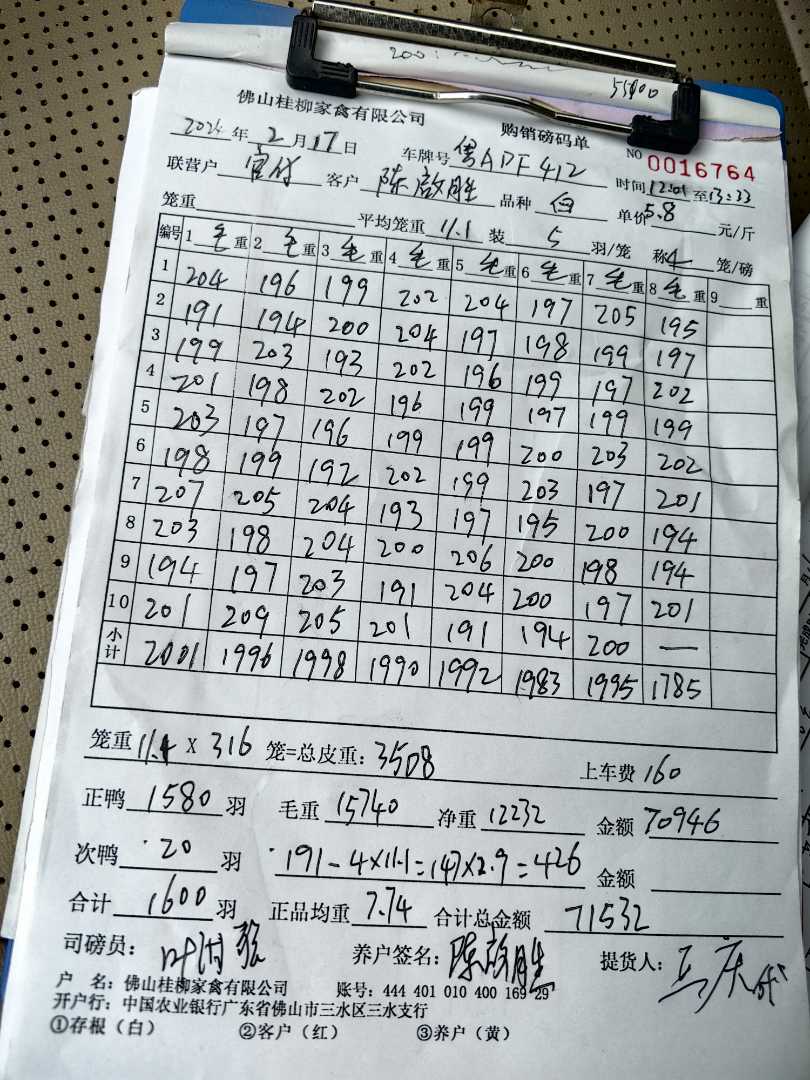 200
55400
佛山桂柳家禽有限公司 购销磅码单
2024年2月17日 车牌号 粤ADF412 NO 0016764
联营户 客户 陈啟胜 品种 白 时间12:01至13:33
笼重 平均笼重 11.1 装 5 羽/笼 称4 笼/磅 单价5.8 元/斤
编号 1毛重 2毛重 3毛重 4毛重 5毛重 6毛重 7毛重 8毛重 9 重
1 204 196 199 202 204 197 205 195
2 191 194 200 204 197 198 199 197
3 199 203 193 202 196 199 197 202
4 201 198 202 196 199 197 199 199
5 203 197 196 199 199 200 203 202
6 198 199 192 202 199 203 197 201
7 207 205 204 193 197 195 200 194
8 203 198 204 200 206 200 198 194
9 194 197 203 191 204 200 197 201
10 201 209 205 201 191 194 200 —
小计 2001 1996 1998 1990 1992 1983 1995 1785
笼重 11.1 X 316 笼=总皮重：3508 上车费 160
正鸭 1580 羽 毛重 15740 净重 12232 金额 70946
次鸭 20 羽 191-4×11.1=147×2.9=426 金额
合计 1600 羽 正品均重 7.74 合计总金额 71532
司磅员： 养户签名：陈啟胜 提货人：
户 名：佛山桂柳家禽有限公司 账号：444 401 010 400 169 29
开户行：中国农业银行广东省佛山市三水区三水支行
①存根（白） ②客户（红） ③养户（黄）